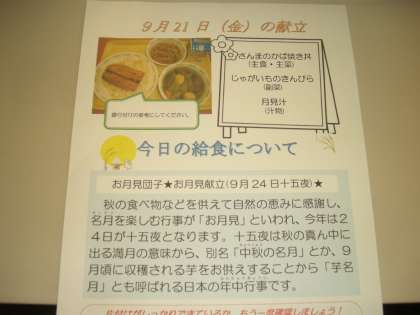 9月21日（金）の献立
さんまのかば焼き丼
（主食・主菜）
じゃがいものきんぴら
（副菜）
月見汁
（汁物）
盛り付けの参考にしてください。
今日の給食について
お月見団子★お月見献立（9月24日十五夜）★
秋の食べ物などを供えて自然の恵みに感謝し、
名月を楽しむ行事が「お月見」といわれ、今年は2
4日が十五夜となります。十五夜は秋の真ん中に
出る満月の意味から、別名「中秋の名月」とか、9
月頃に収穫される芋をお供えすることから「芋名
月」とも呼ばれる日本の年中行事です。
片付けがしっかりできているか、もう一度確認しましょう！